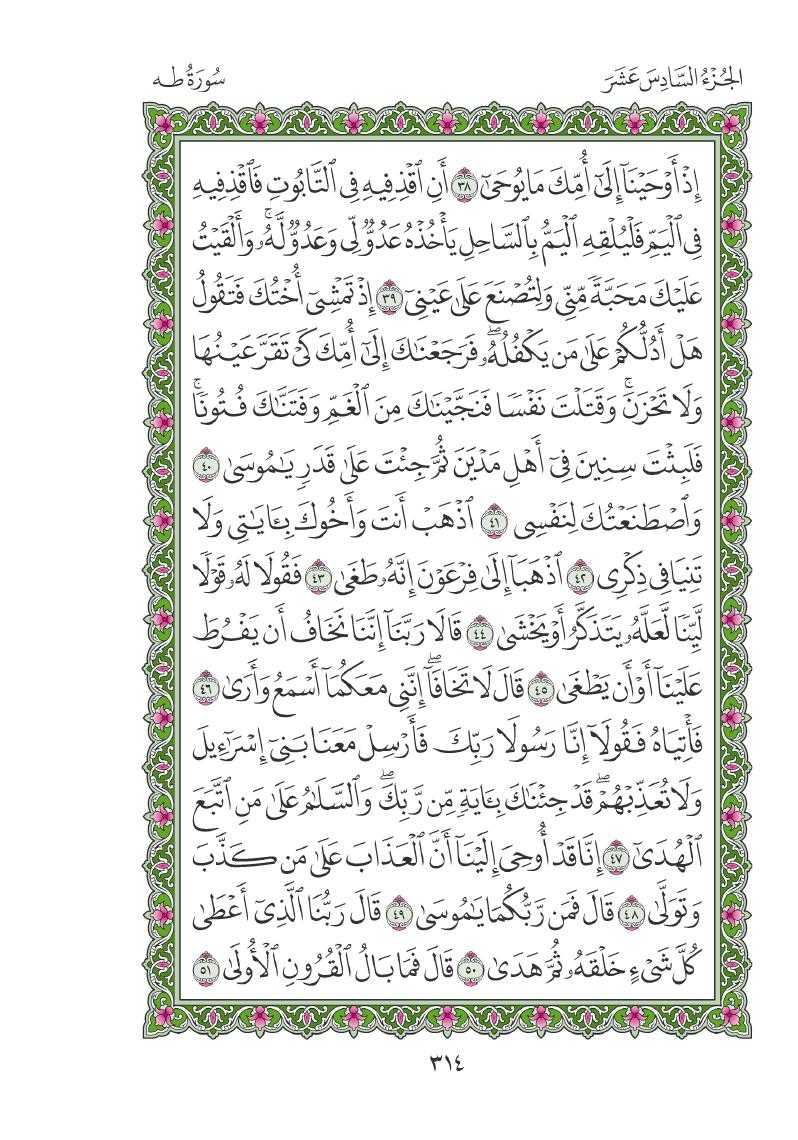 الجُزْءُ السَّادِسَ عَشَرَ
سُورَةُ طه
إِذْ أَوْحَيْنَآ إِلَىٰٓ أُمِّكَ مَا يُوحَىٰٓ ٣٨ أَنِ ٱقْذِفِيهِ فِى ٱلتَّابُوتِ فَٱقْذِفِيهِ
فِى ٱلْيَمِّ فَلْيُلْقِهِ ٱلْيَمُّ بِٱلسَّاحِلِ يَأْخُذْهُ عَدُوٌّ لِّى وَعَدُوٌّ لَّهُۥ ۚ وَأَلْقَيْتُ
عَلَيْكَ مَحَبَّةً مِّنِّى وَلِتُصْنَعَ عَلَىٰ عَيْنِىٓ ٣٩ إِذْ تَمْشِىٓ أُخْتُكَ فَتَقُولُ
هَلْ أَدُلُّكُمْ عَلَىٰ مَن يَكْفُلُهُۥ ۖ فَرَجَعْنَٰكَ إِلَىٰٓ أُمِّكَ كَىْ تَقَرَّ عَيْنُهَا
وَلَا تَحْزَنَ ۚ وَقَتَلْتَ نَفْسًا فَنَجَّيْنَٰكَ مِنَ ٱلْغَمِّ وَفَتَنَّٰكَ فُتُونًا ۚ
فَلَبِثْتَ سِنِينَ فِىٓ أَهْلِ مَدْيَنَ ثُمَّ جِئْتَ عَلَىٰ قَدَرٍ يَٰمُوسَىٰ ٤٠
وَٱصْطَنَعْتُكَ لِنَفْسِى ٤١ ٱذْهَبْ أَنتَ وَأَخُوكَ بِـَٔايَٰتِى وَلَا
تَنِيَا فِى ذِكْرِى ٤٢ ٱذْهَبَآ إِلَىٰ فِرْعَوْنَ إِنَّهُۥ طَغَىٰ ٤٣ فَقُولَا لَهُۥ قَوْلًا
لَّيِّنًا لَّعَلَّهُۥ يَتَذَكَّرُ أَوْ يَخْشَىٰ ٤٤ قَالَا رَبَّنَآ إِنَّنَا نَخَافُ أَن يَفْرُطَ
عَلَيْنَآ أَوْ أَن يَطْغَىٰ ٤٥ قَالَ لَا تَخَافَآ ۖ إِنَّنِى مَعَكُمَآ أَسْمَعُ وَأَرَىٰ ٤٦
فَأْتِيَاهُ فَقُولَآ إِنَّا رَسُولَا رَبِّكَ فَأَرْسِلْ مَعَنَا بَنِىٓ إِسْرَٰٓءِيلَ
وَلَا تُعَذِّبْهُمْ ۖ قَدْ جِئْنَٰكَ بِـَٔايَةٍ مِّن رَّبِّكَ ۖ وَٱلسَّلَٰمُ عَلَىٰ مَنِ ٱتَّبَعَ
ٱلْهُدَىٰٓ ٤٧ إِنَّا قَدْ أُوحِىَ إِلَيْنَآ أَنَّ ٱلْعَذَابَ عَلَىٰ مَن كَذَّبَ
وَتَوَلَّىٰ ٤٨ قَالَ فَمَن رَّبُّكُمَا يَٰمُوسَىٰ ٤٩ قَالَ رَبُّنَا ٱلَّذِىٓ أَعْطَىٰ
كُلَّ شَىْءٍ خَلْقَهُۥ ثُمَّ هَدَىٰ ٥٠ قَالَ فَمَا بَالُ ٱلْقُرُونِ ٱلْأُولَىٰ ٥١
٣١٤